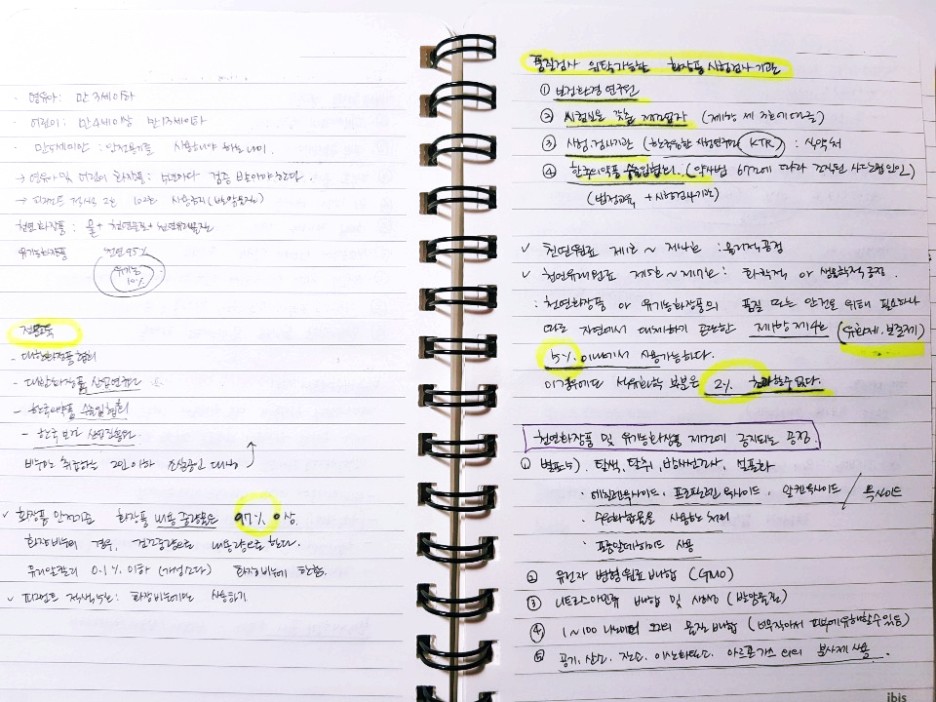 · 영유아 : 만 3세이하
· 어린이 : 만 4세이상 만 13세이하
· 만 5세미만 : 안전용기를 사용해야 하는 나이.
→ 영유아 및 어린이 화장품 :
→ 피그먼트 적색 2호 102호 사용금지
천연화장품 : 물 + 천연원료 +
유기농화장품 천연 95%
유기농 10%
전문교육
- 대한화장품협회
- 대한화장품 산업연구원
- 한국의약품 수출입협회
- 한국보건 산업진흥원
2인이하
✓ 화장품 안전기준 화장품 내용 중량은 97% 이상.
화장비누의 경우, 건조중량으로 내용량으로 한다.
유리알칼리 0.1% 이하 화장비누에 한함.
✓ 피그먼트 적색 5호 : 화장비누에만 사용하기
품질검사 위탁가능한 화장품 시험검사기관
① 보건환경연구원
② 시험실을 갖춘 제조업자
③ 시험.검사기관 (KTR) : 식약처
④ 한국의약품 수출입협회. (약사법 67조에 따라 조직된 사단법인)
(법정교육 + 시험검사기관)
✓ 천연원료 제1호 ~ 제4호 : 물리적공정
✓ 천연유래원료 제5호 ~ 제7호 : 화학적 or 생물학적 공정.
: 천연화장품 or 유기농화장품의 품질 또는 안전을 위해 필요하나
따로 자연에서 대체하기 곤란한 제1항 제4호 (유화제. 보존제)
5% 이내에서 사용가능하다.
이경우에도 석유화학 부분은 2% 초과할수 없다.
천연화장품 및 유기농화장품 제조에 금지되는 공정.
① 탈색, 탈취, 방사선조사, 설폰화
· 에칠렌옥사이드, 프로필렌옥사이드, 알켄옥사이드 / 옥사이드
· 수은화합물을 사용한 처리
· 포름알데하이드 사용
② 유전자 변형원료배합 (GMO)
③ 니트로스아민류 배합 및 생성 (발암물질)
④ 1~100 나노미터 크기 물질배합 (너무작아서 피부에 유해할수있음)
⑤ 공기. 산소. 질소. 이산화탄소. 아르곤 가스 외의 분사제 사용.
ibis